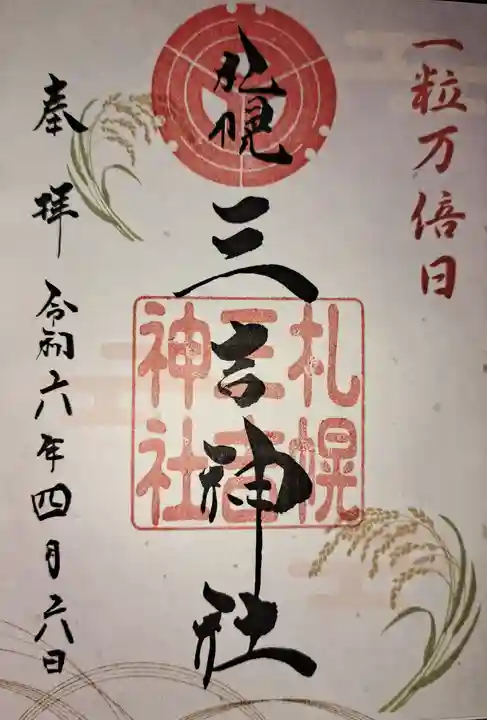 一粒万倍日
札幌
三吉神社
札幌三吉神社
奉拝 令和六年四月六日